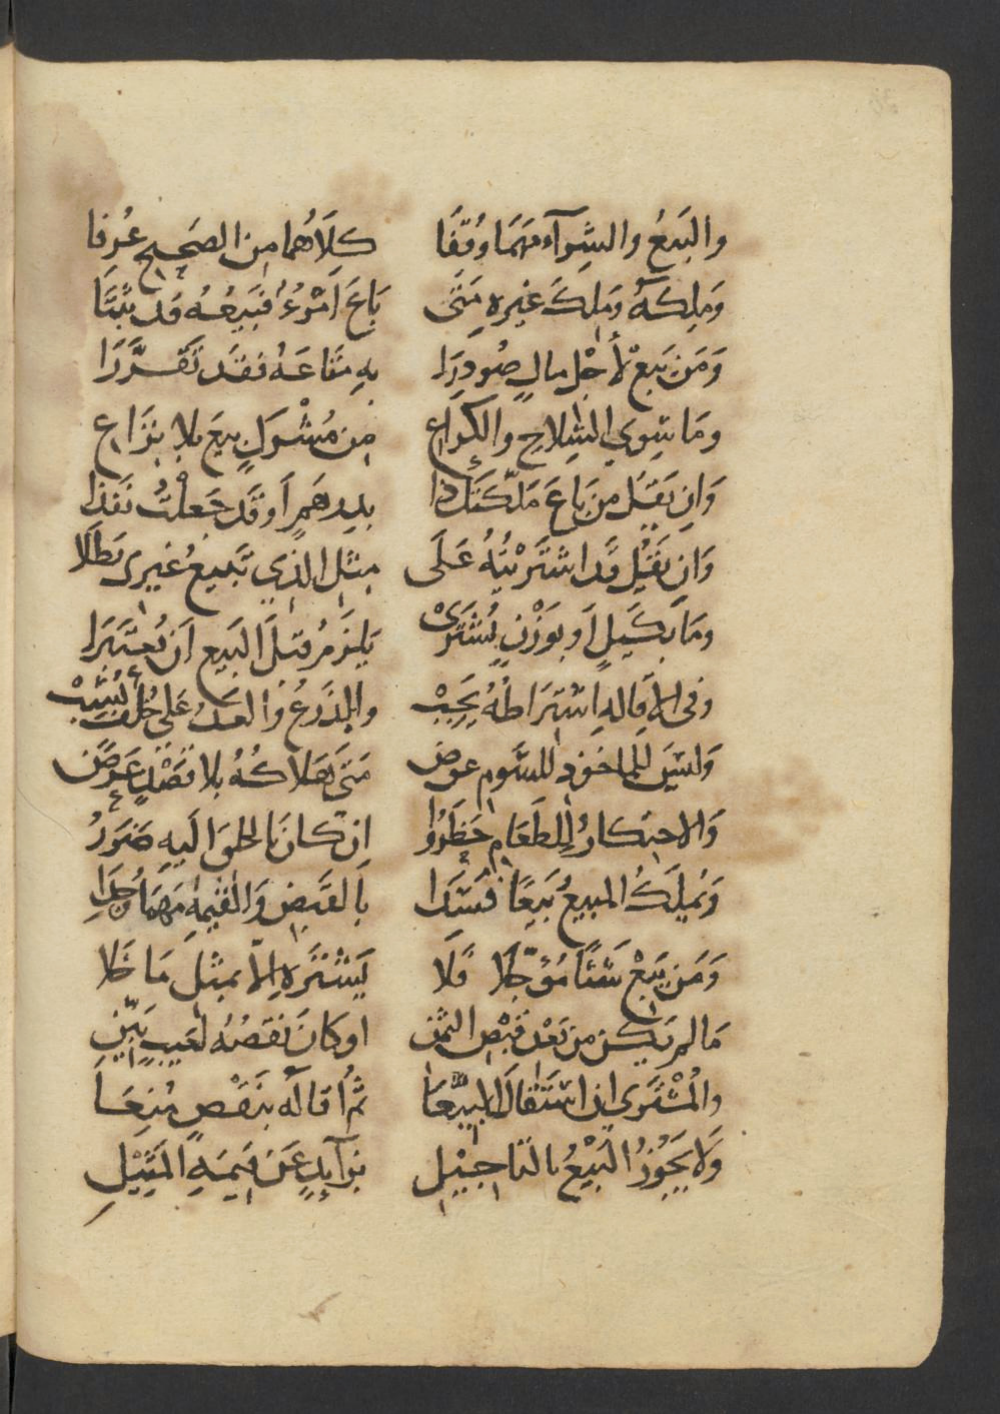 والبَيعُ والشِرآء مَهمَا وُقفَا كِلَاهُما مِن الصَحِيح عُرفا
وَمِلكهُ وَمِلكَ غيرهِ مَتَى بَاعَ امرُءٌ فبَيعُهُ قد ثَبَتَا
وَمَن يَبعْ لأجل مالٍ صُودِرَا بهِ مَتَاعَهُ فقد تَقَرَّرَا
ومَا سِوى السِلاح والكراع مِن مُشْرَكٍ بِيعَ بلا نِزَاع
وَان يَقُل من بَاعَ مَلّكتُكَ ذا بدِرهَمٍ اَو قَد جَعلتُ نَفَذا
وَان يَقُل قَد اشتَرَيْتُهُ عَلَى مِثل الذي يَبيعُ غيرى بَطلَا
ومَا بكَيلٍ اَو بوَزْنٍ يُشتَرَى يَلزَمُ قبلَ البَيع اَن يُعتَبَرَا
وفى الاقالهِ اشتِرَاطُهُ يَجِبْ والذَرعُ والعَدُ عَلى خُلفٍ
وَليسَ للماخوذِ للسَّوم عوض مَتَى هلاكُهُ بلا عَرَض
وَالاحتِكارُ للطعَامِ حَظَرُوا ان كانَ بالخلق اليهِ ضَرَرُ
وَيُملَكُ المبيعُ بَيعًا فَسَدا بالقَبضِ وَالقِيمهِ مَهمَا وُجدَا
وَمَن يَبعْ شَئًا مُؤَجّلا فَلَا يَشتَرهِ الّا بمِثلِ مَا خَلا
مَا لم يَكن من بَعْد قَبْضِ الثمَنِ او كانَ نَقصُهُ لعَيبٍ بَيّنِ
والمُشْتَرى ان استَقالَ البيّعَا ثُم اَقالَهُ بنَقصٍ مُنِعَا
وَلا يَجُوزُ البَيعُ بالتاجِيلِ بزآيدٍ عَن قِيمَةِ المَثِيلِ